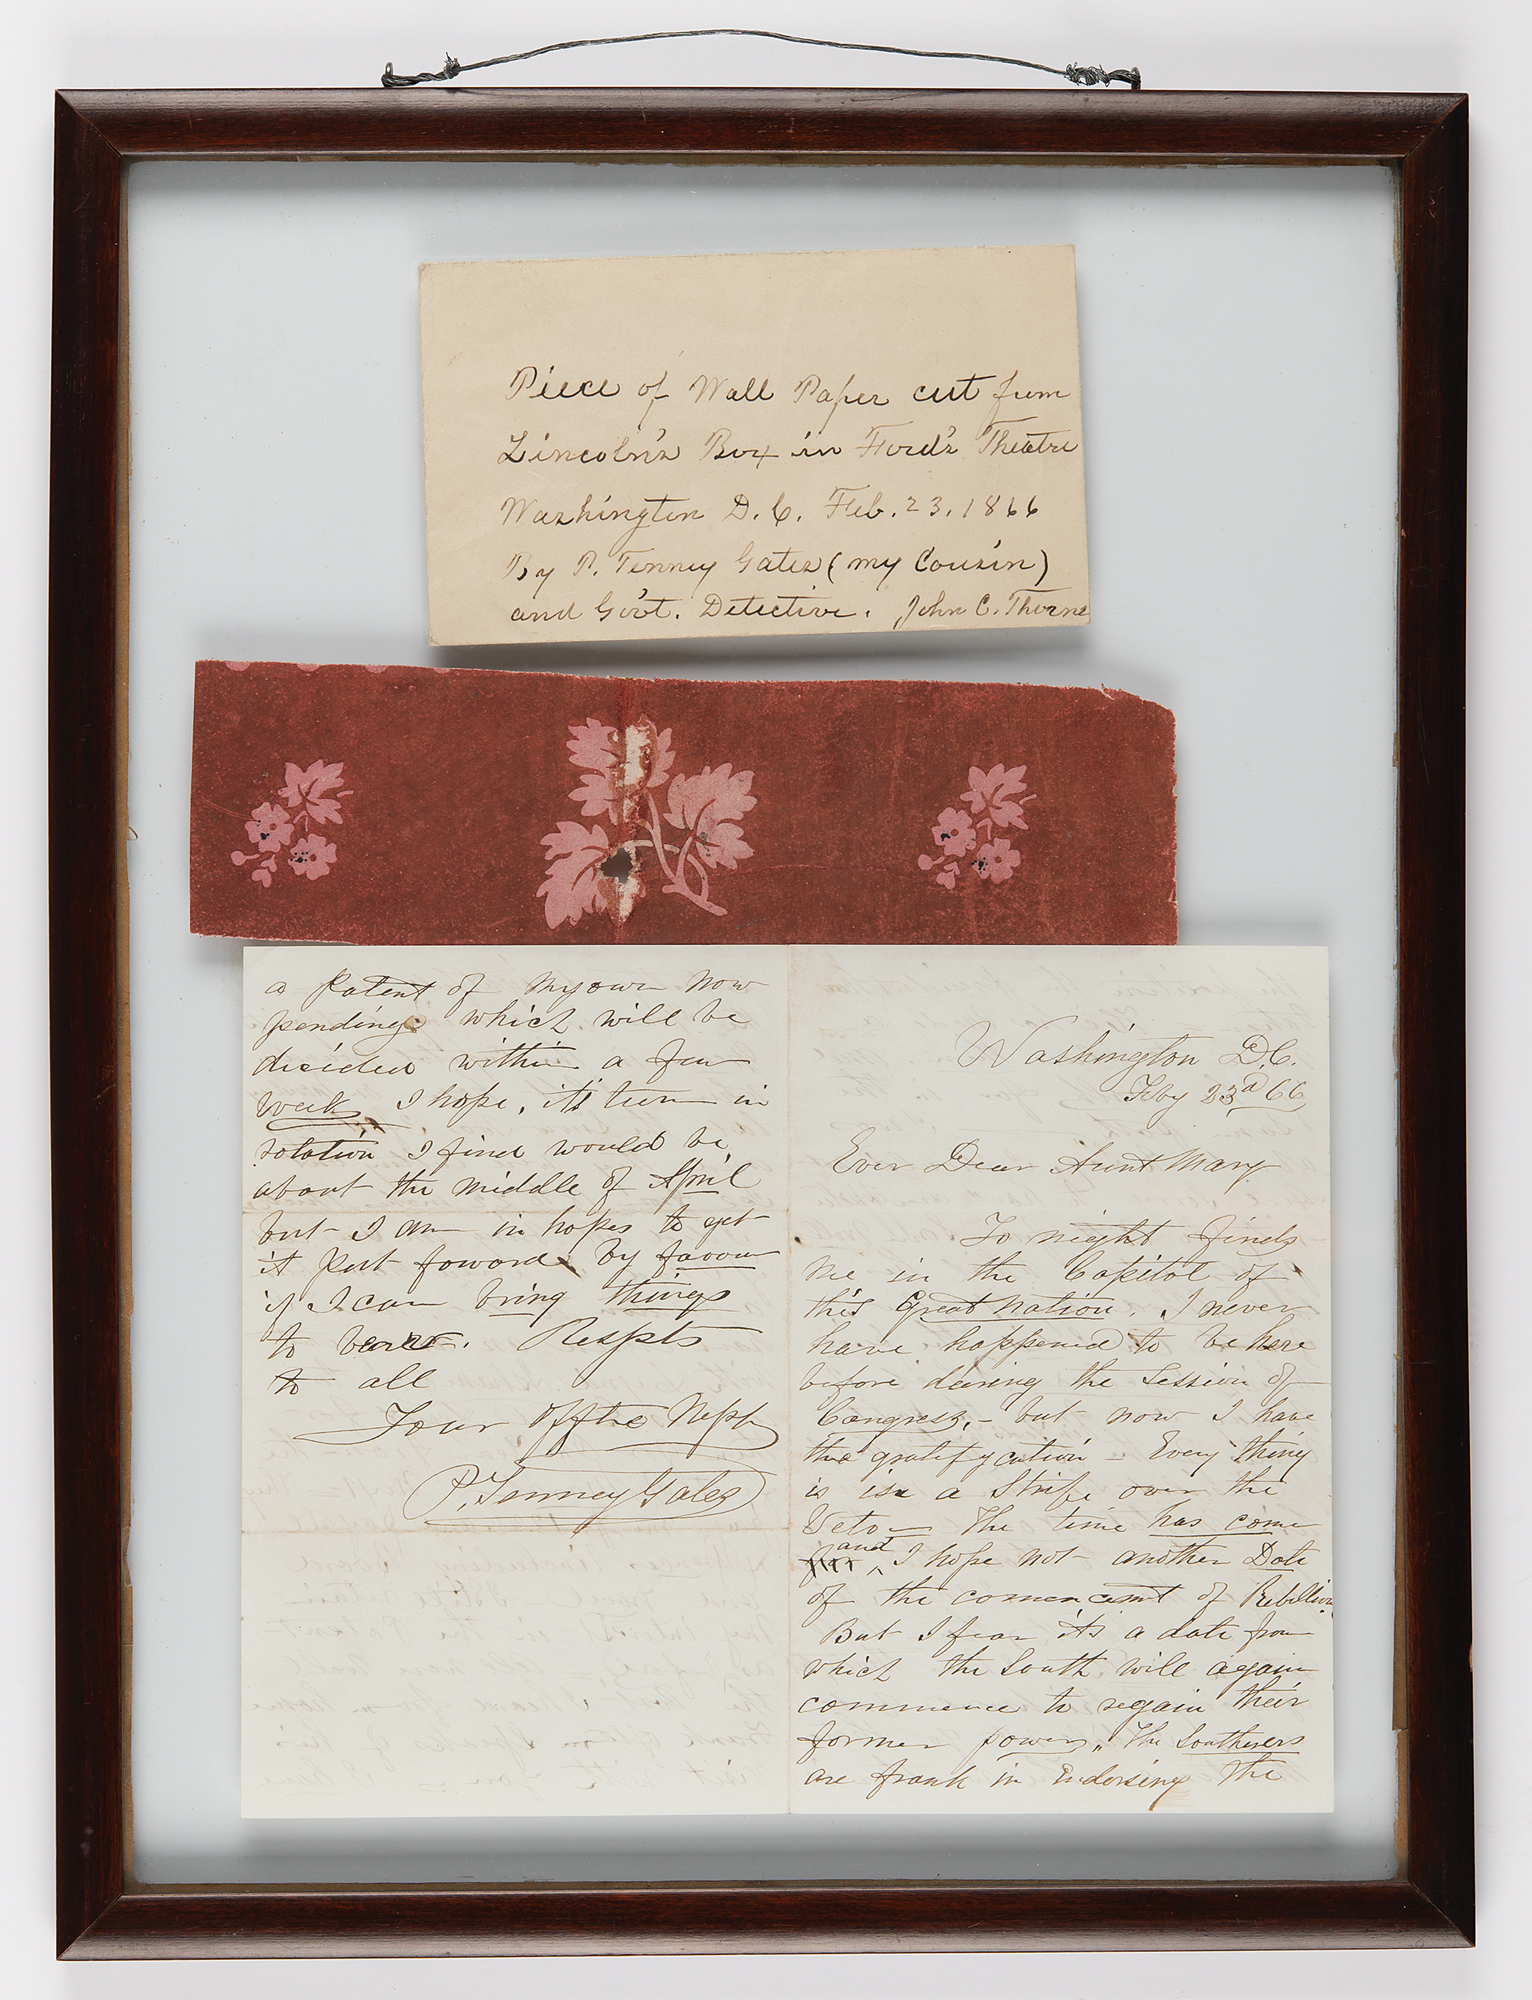 Piece of Wall Paper cut from
Lincoln's Box in Ford's Theatre
Washington D.C. Feb. 23. 1866
By P. Tenney Gates (my Cousin)
and Gov't. Detective. John C. Thorne
a Patent of my own now
pending which will be
decided within a few
weeks I hope, it's turn in
rotation I find would be
about the middle of April
but I am in hopes to get
it put foward by favour
if I can bring things
to bear. Respts
to all
Your afftc Neph
P. Tenney Gates
Washington D.C.
Feby 23d 66
Ever Dear Aunt Mary
To night finds
me in the Capitol of
this Great nation. I never
have happened to be here
before during the session of
Congress, - but now I have
the gratifycation - Every thing
is in a Strife over the
Veto - The time has come
and I hope not another Date
of the comencemt of Rebellion
But I fear it's a date from
which the South will again
commence to regain their
former power, The Southerers
are frank in Endorsing the